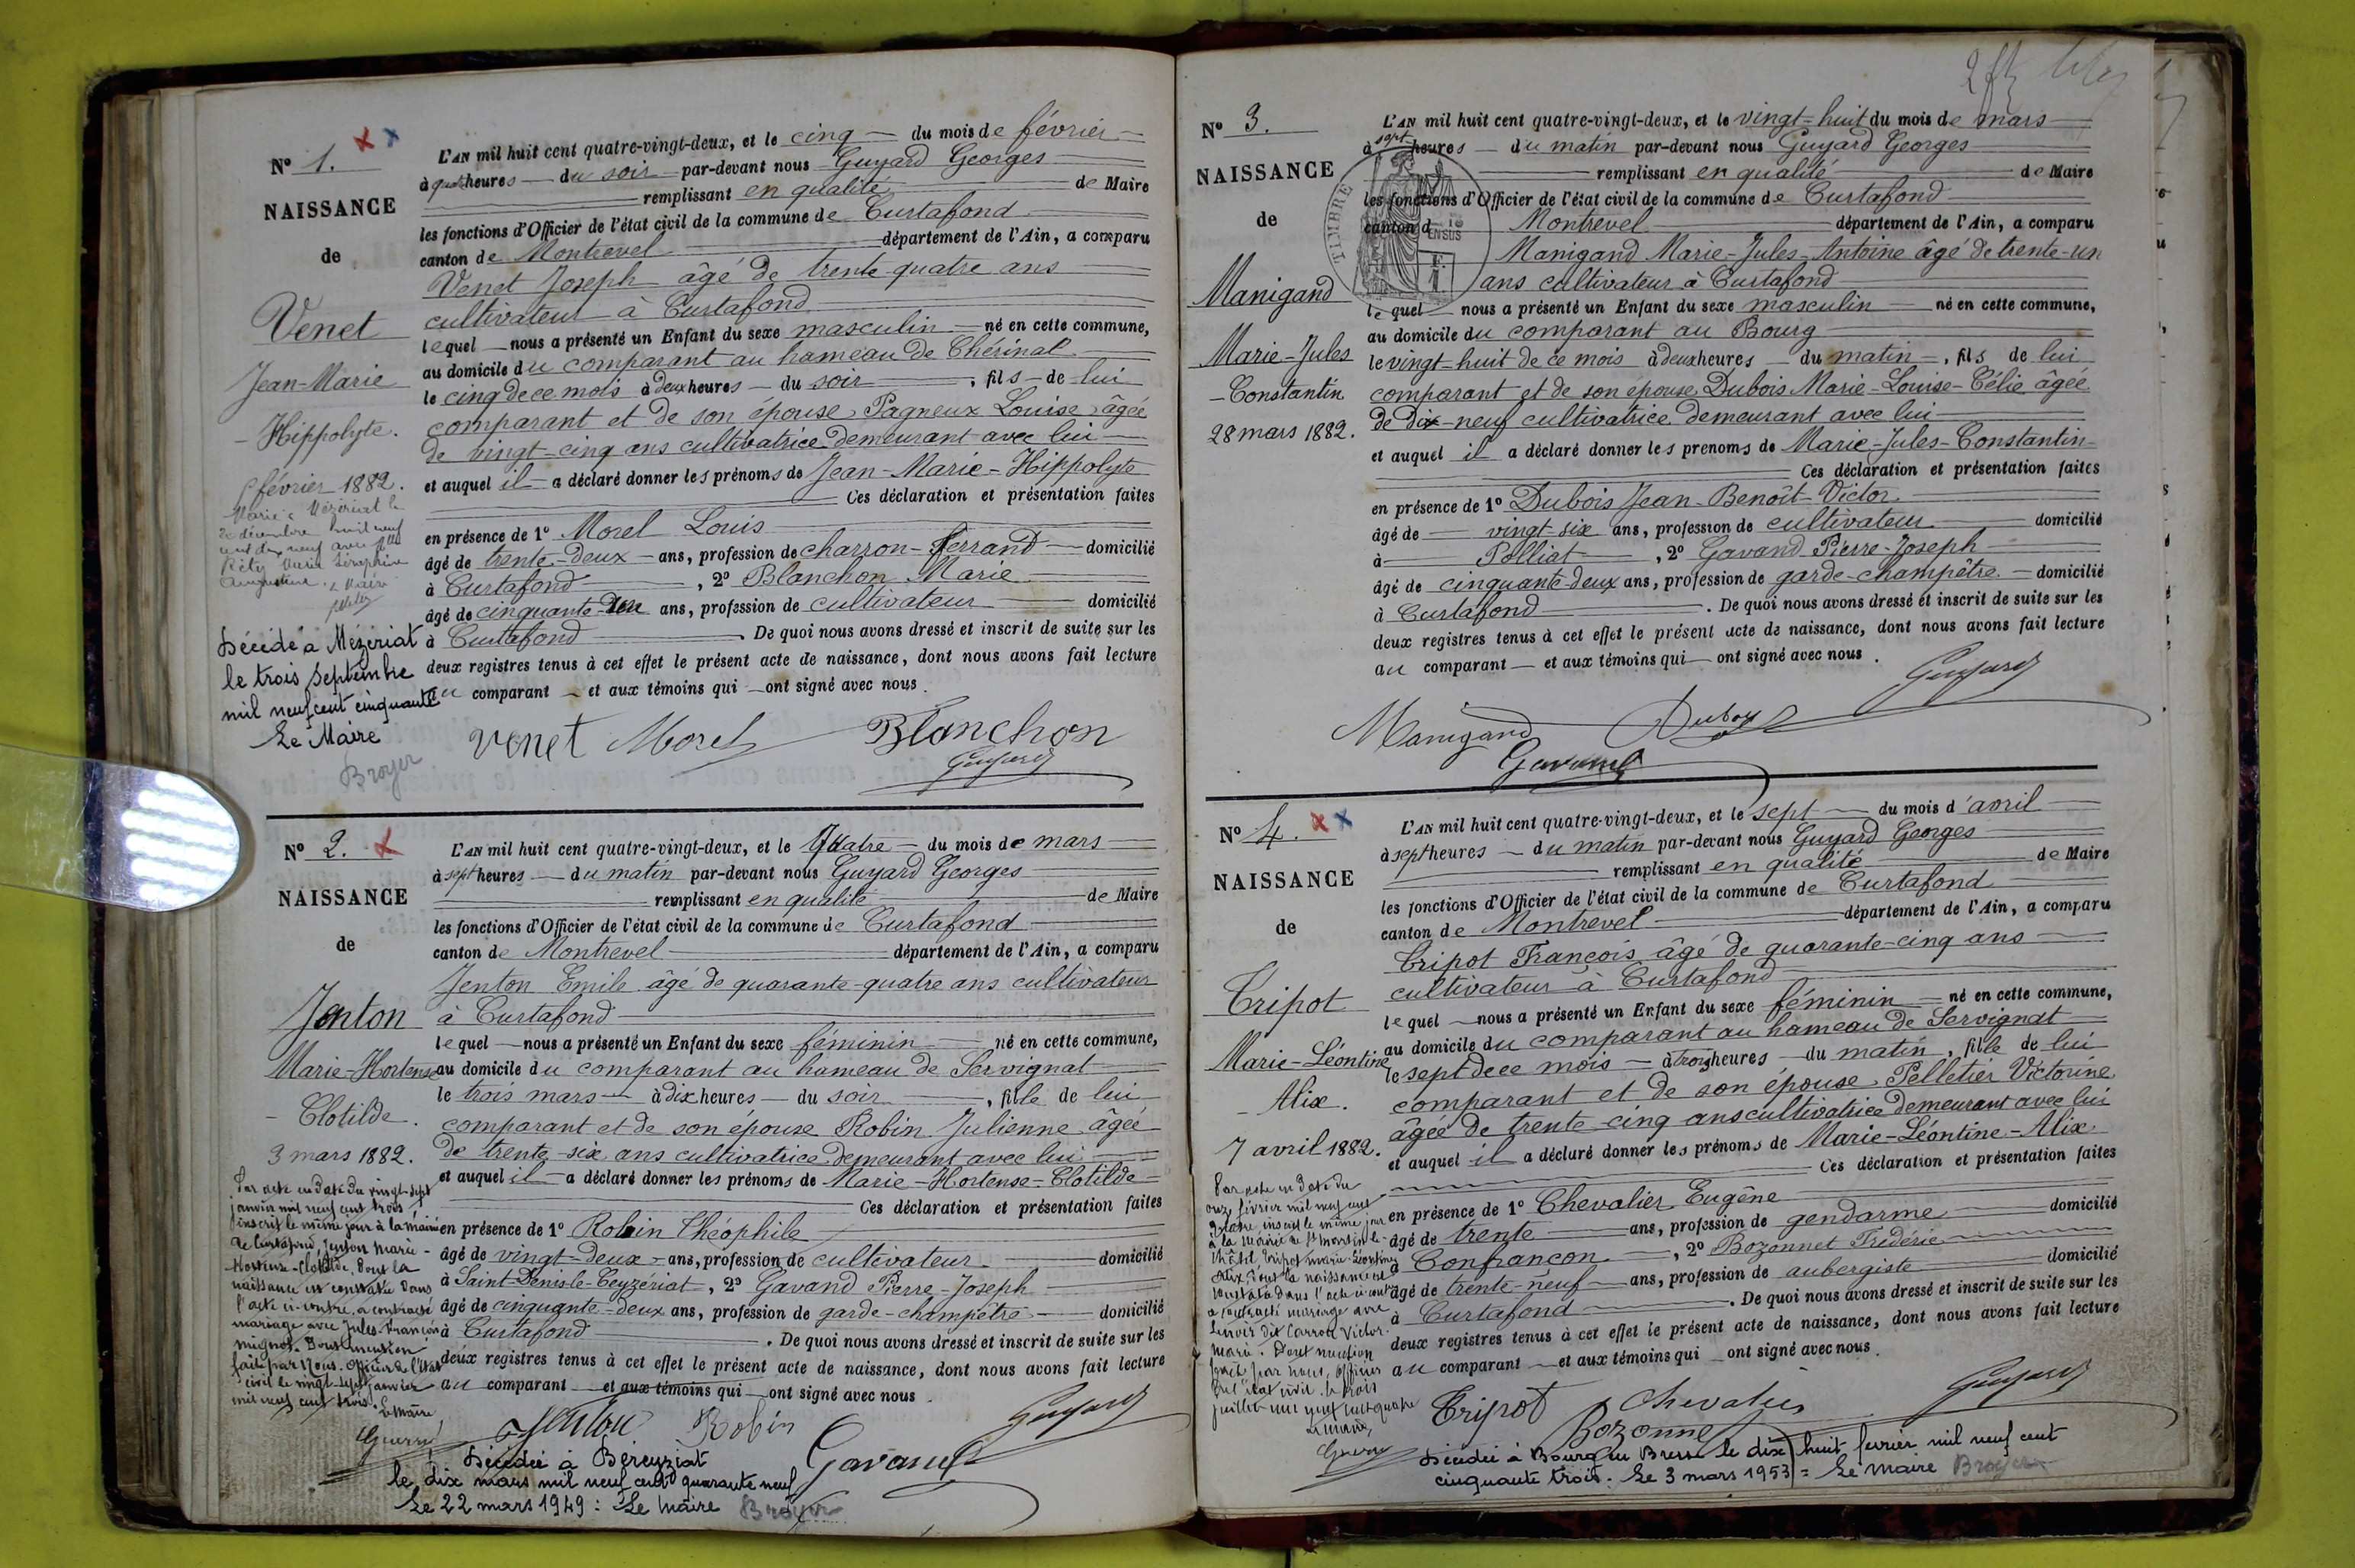 Nº 1.
NAISSANCE
de
Venet
Jean-Marie
- Hippolyte.
février 1882.
Marié à Mézériat le
décembre mil neuf
cent dix neuf avec Mlle
Marie Séraphine
Augustine. Le Maire
Décédé à Mézériat
le trois septembre
mil neuf cent cinquante
Le Maire
Broyer
L'AN mil huit cent quatre-vingt-deux, et le cinq du mois de février
à quatre heures du soir par-devant nous Guyard Georges
remplissant en qualité de Maire
les fonctions d'Officier de l'état civil de la commune de Curtafond
canton de Montrevel département de l'Ain, a comparu
Venet Joseph âgé de trente-quatre ans
cultivateur à Curtafond
lequel nous a présenté un Enfant du sexe masculin né en cette commune,
au domicile du comparant au hameau de Chérinal
le cinq de ce mois à deux heures du soir, fils de lui
comparant et de son épouse Pagneux Louise âgée
de vingt-cinq ans cultivatrice demeurant avec lui
et auquel il a déclaré donner les prénoms de Jean-Marie-Hippolyte
Ces déclaration et présentation faites
en présence de 1º Morel Louis
âgé de trente-deux ans, profession de charron-ferrand domicilié
à Curtafond, 2º Blanchon Marie
âgé de cinquante- ans, profession de cultivateur domicilié
à Curtafond. De quoi nous avons dressé et inscrit de suite sur les
deux registres tenus à cet effet le présent acte de naissance, dont nous avons fait lecture
au comparant et aux témoins qui ont signé avec nous.
Venet Morel Blanchon
Guyard
Nº 2.
NAISSANCE
de
Jenton
Marie-Hortense
- Clotilde.
3 mars 1882.
Par acte en date du vingt-sept
janvier mil neuf cent trois
inscrit le même jour à la mairie
de Curtafond, Jenton Marie-
Hortense-Clotilde, dont la
naissance est constatée dans
l'acte ci-contre, a contracté
mariage avec Jules-François
Mignot. Dont mention
faite par Nous, officier de l'état
civil le vingt-sept janvier
mil neuf cent trois.
Le Maire
L'AN mil huit cent quatre-vingt-deux, et le quatre du mois de mars
à sept heures du matin par-devant nous Guyard Georges
remplissant en qualité de Maire
les fonctions d'Officier de l'état civil de la commune de Curtafond
canton de Montrevel département de l'Ain, a comparu
Jenton Emile âgé de quarante-quatre ans cultivateur
à Curtafond
lequel nous a présenté un Enfant du sexe féminin né en cette commune,
au domicile du comparant au hameau de Servignat
le trois mars à dix heures du soir, fille de lui
comparant et de son épouse Robin Julienne âgée
de trente-six ans cultivatrice demeurant avec lui
et auquel il a déclaré donner les prénoms de Marie-Hortense-Clotilde
Ces déclaration et présentation faites
en présence de 1º Robin Théophile
âgé de vingt-deux ans, profession de cultivateur domicilié
à Saint-Denis-le-Ceyzériat, 2º Gavand Pierre-Joseph
âgé de cinquante-deux ans, profession de garde-champêtre domicilié
à Curtafond. De quoi nous avons dressé et inscrit de suite sur les
deux registres tenus à cet effet le présent acte de naissance, dont nous avons fait lecture
au comparant et aux témoins qui ont signé avec nous.
Jenton Robin Guyard
Gavand
Décédée à Béreyziat
le dix mars mil neuf cent quarante neuf
Le 22 mars 1949 : Le Maire Broyer
Nº 3.
NAISSANCE
de
Manigand
Marie-Jules
- Constantin
28 mars 1882.
TIMBRE
L'AN mil huit cent quatre-vingt-deux, et le vingt-huit du mois de mars
à sept heures du matin par-devant nous Guyard Georges
remplissant en qualité de Maire
les fonctions d'Officier de l'état civil de la commune de Curtafond
canton d Montrevel département de l'Ain, a comparu
Manigand Marie-Jules-Antoine âgé de trente-un
ans cultivateur à Curtafond
lequel nous a présenté un Enfant du sexe masculin né en cette commune,
au domicile du comparant au Bourg
le vingt-huit de ce mois à deux heures du matin, fils de lui
comparant et de son épouse Dubois Marie-Louise-Célie âgée
de dix-neuf cultivatrice demeurant avec lui
et auquel il a déclaré donner les prenoms de Marie-Jules-Constantin
Ces déclaration et présentation faites
en présence de 1º Dubois Jean-Benoît-Victor
âgé de vingt-six ans, profession de cultivateur domicilié
à Polliat, 2º Gavand Pierre-Joseph
âgé de cinquante-deux ans, profession de garde-champêtre domicilié
à Curtafond. De quoi nous avons dressé et inscrit de suite sur les
deux registres tenus à cet effet le présent acte de naissance, dont nous avons fait lecture
au comparant et aux témoins qui ont signé avec nous.
Guyard
Manigand Dubois
Gavand
Nº 4.
NAISSANCE
de
Tripot
Marie-Léontine
- Alix.
7 avril 1882.
Par acte en date du
onze février mil neuf cent
quatre, inscrit le même jour
à la mairie de St Martin-le-
Châtel, Tripot Marie-Léontine
Alix, dont la naissance est
constatée dans l'acte ci-contre
a contracté mariage avec
dit Carron Victor
Marie. Dont mention
faite par nous, officier
de l'état civil le trois
juillet mil neuf cent quatre
Le Maire,
L'AN mil huit cent quatre-vingt-deux, et le sept du mois d'avril
à sept heures du matin par-devant nous Guyard Georges
remplissant en qualité de Maire
les fonctions d'Officier de l'état civil de la commune de Curtafond
canton de Montrevel département de l'Ain, a comparu
Tripot François âgé de quarante-cinq ans
cultivateur à Curtafond
lequel nous a présenté un Enfant du sexe féminin né en cette commune,
au domicile du comparant au hameau de Servignat
le sept de ce mois à trois heures du matin, fille de lui
comparant et de son épouse Pelletier Victorine
âgée de trente-cinq ans cultivatrice demeurant avec lui
et auquel il a déclaré donner les prénoms de Marie-Léontine-Alix.
Ces déclaration et présentation faites
en présence de 1º Chevalier Eugène
âgé de trente ans, profession de gendarme domicilié
à Confrançon, 2º Bozonnet Frédéric
âgé de trente-neuf ans, profession de aubergiste domicilié
à Curtafond. De quoi nous avons dressé et inscrit de suite sur les
deux registres tenus à cet effet le présent acte de naissance, dont nous avons fait lecture
au comparant et aux témoins qui ont signé avec nous.
Tripot Chevalier Guyard
Bozonnet
Décédée à Bourg en Bresse le dix huit février mil neuf cent
cinquante trois. Le 3 mars 1953 = Le Maire Broyer